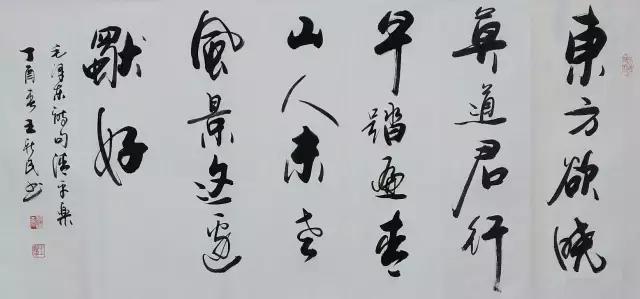 東方欲曉
莫道君行
早踏遍青
山人未老
風景这邊
獨好
毛泽东诗句清平樂
丁酉春王新民书